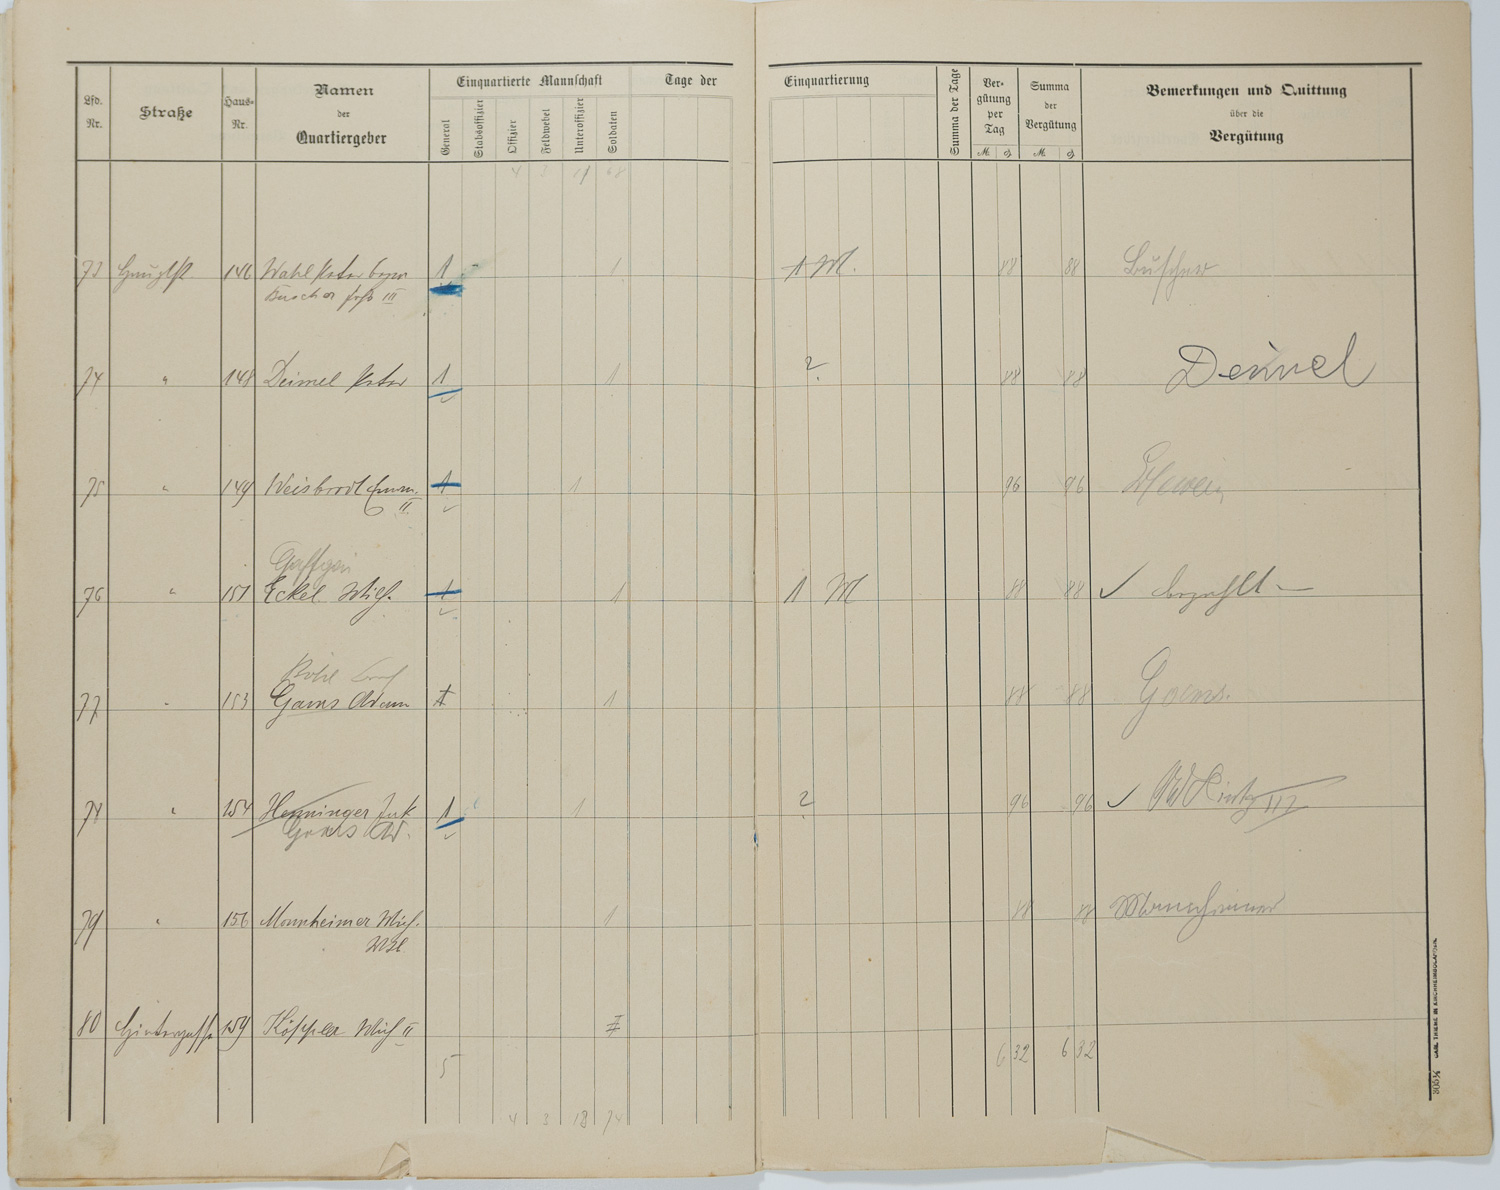 Lfd. Nr. Straße Haus-Nr. Namen der Quartiergeber Einquartierte Mannschaft Tage der Einquartierung Summa der Tage Vergütung per Tag Summa der Vergütung Bemerkungen und Quittung über die Vergütung
General Stabsoffizier Offizier Feldwebel Unteroffizier Soldaten M. ₰ M. ₰
4 3 17 68
73 Hauptst. 146 Wahl Peter 1 1 1 M. 88 88 Buschner
III
74 " 148 Deimel Peter 1 1 ? 88 88 Deimel
75 " 149 Weisbrodt 1 1 96 96
II
76 " 151 Eckel Mich. 1 1 1 M 88 88 ✓ bezahlt —
77 " 153 Gams Adam 1 1 88 88 Gams
78 " 154 Henninger Jak 1 1 ? 96 96 ✓ III
Gams Ad.
79 " 156 Mannheimer Mich. 1 88 88 Mannheimer
80 Hintergasse 159 Mich II
5 6 32 6 32
4 3 18 74